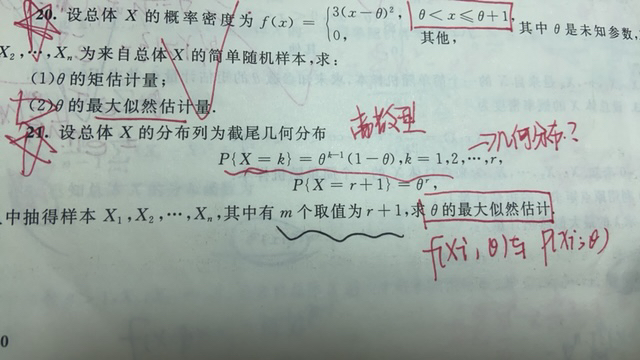 20. 设总体 X 的概率密度为 f(x) = { 3(x-θ)², θ<x≤θ+1, 其中 θ 是未知参数,
0, 其他,
X₂,⋯,Xₙ 为来自总体 X 的简单随机样本,求:
(1)θ 的矩估计量;
(2)θ 的最大似然估计量.
21. 设总体 X 的分布列为截尾几何分布
离散型
⇒几何分布?
P{X = k} = θᵏ⁻¹(1-θ), k = 1,2,⋯,r,
P{X = r+1} = θʳ,
中抽得样本 X₁,X₂,⋯,Xₙ,其中有 m 个取值为 r+1,求 θ 的最大似然估计
f(Xi,θ)与 P(Xi;θ)
0